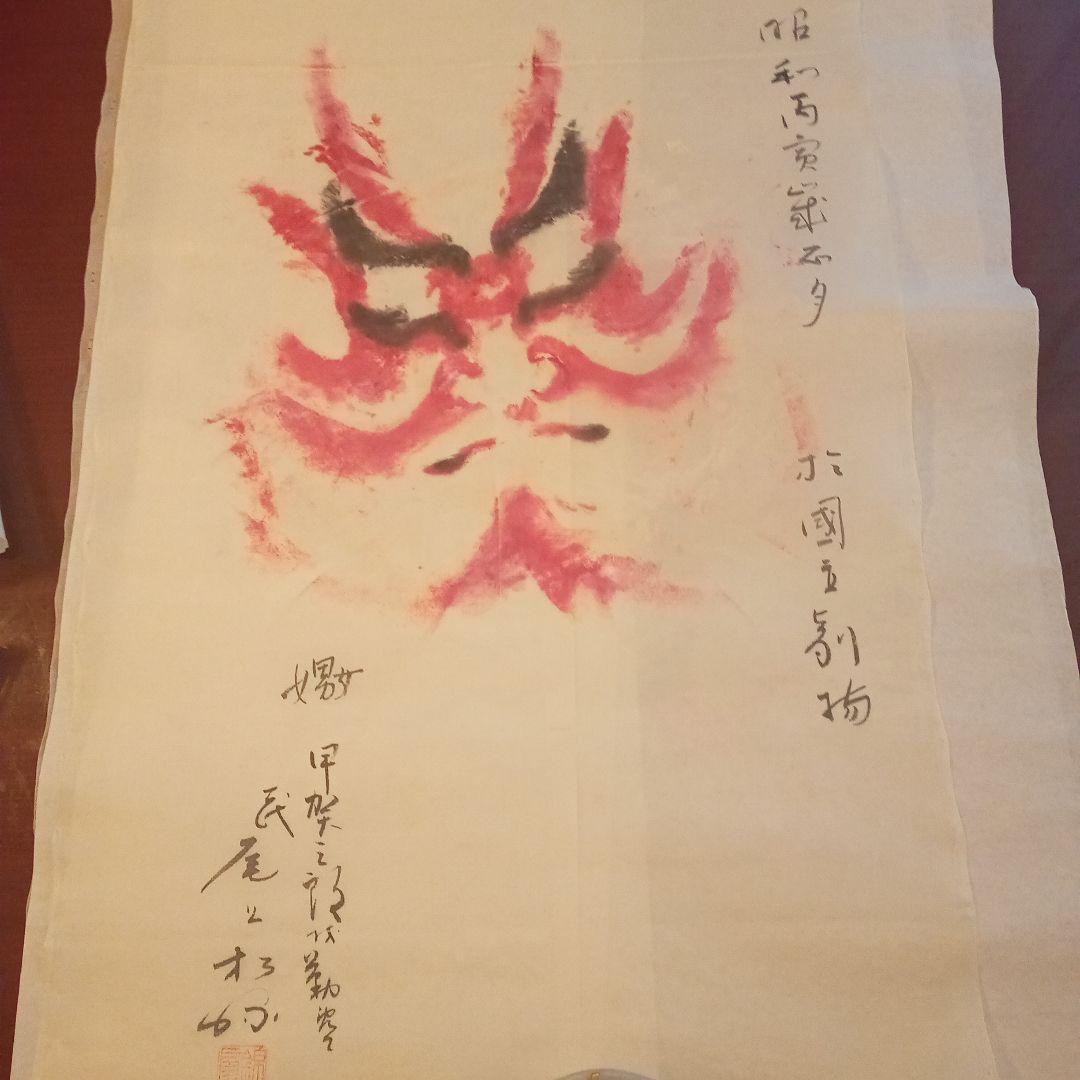 昭和丙寅歳正月
於國立劇場
嫐
甲賀三郎
尾上松緑